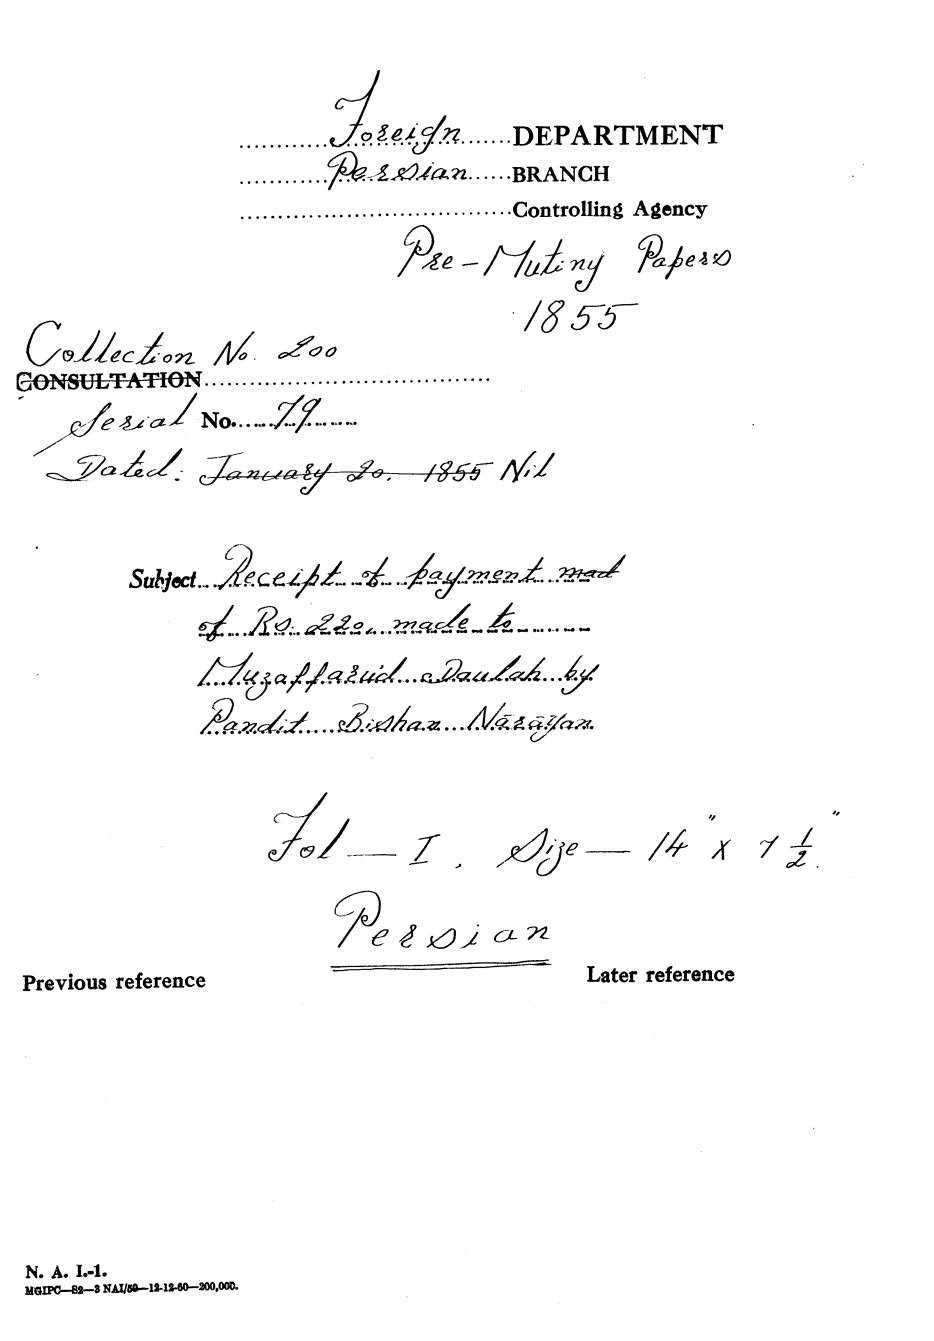 Foreign DEPARTMENT
Persian BRANCH
Controlling Agency
Pre-Mutiny Papers
1855
Collection No. 200
CONSULTATION
Serial No. 79
Dated: January 20. 1855 Nil
Subject Receipt of payment mad
of Rs. 220, made to
Muzaffarud Daulah by
Pandit Bishan Nārāyan.
Fol — I. Size — 14" x 7 1/2"
Persian
Previous reference Later reference
N. A. I.-1.
MGIPC—S2—3 NAI/59—12-12-60—200,000.